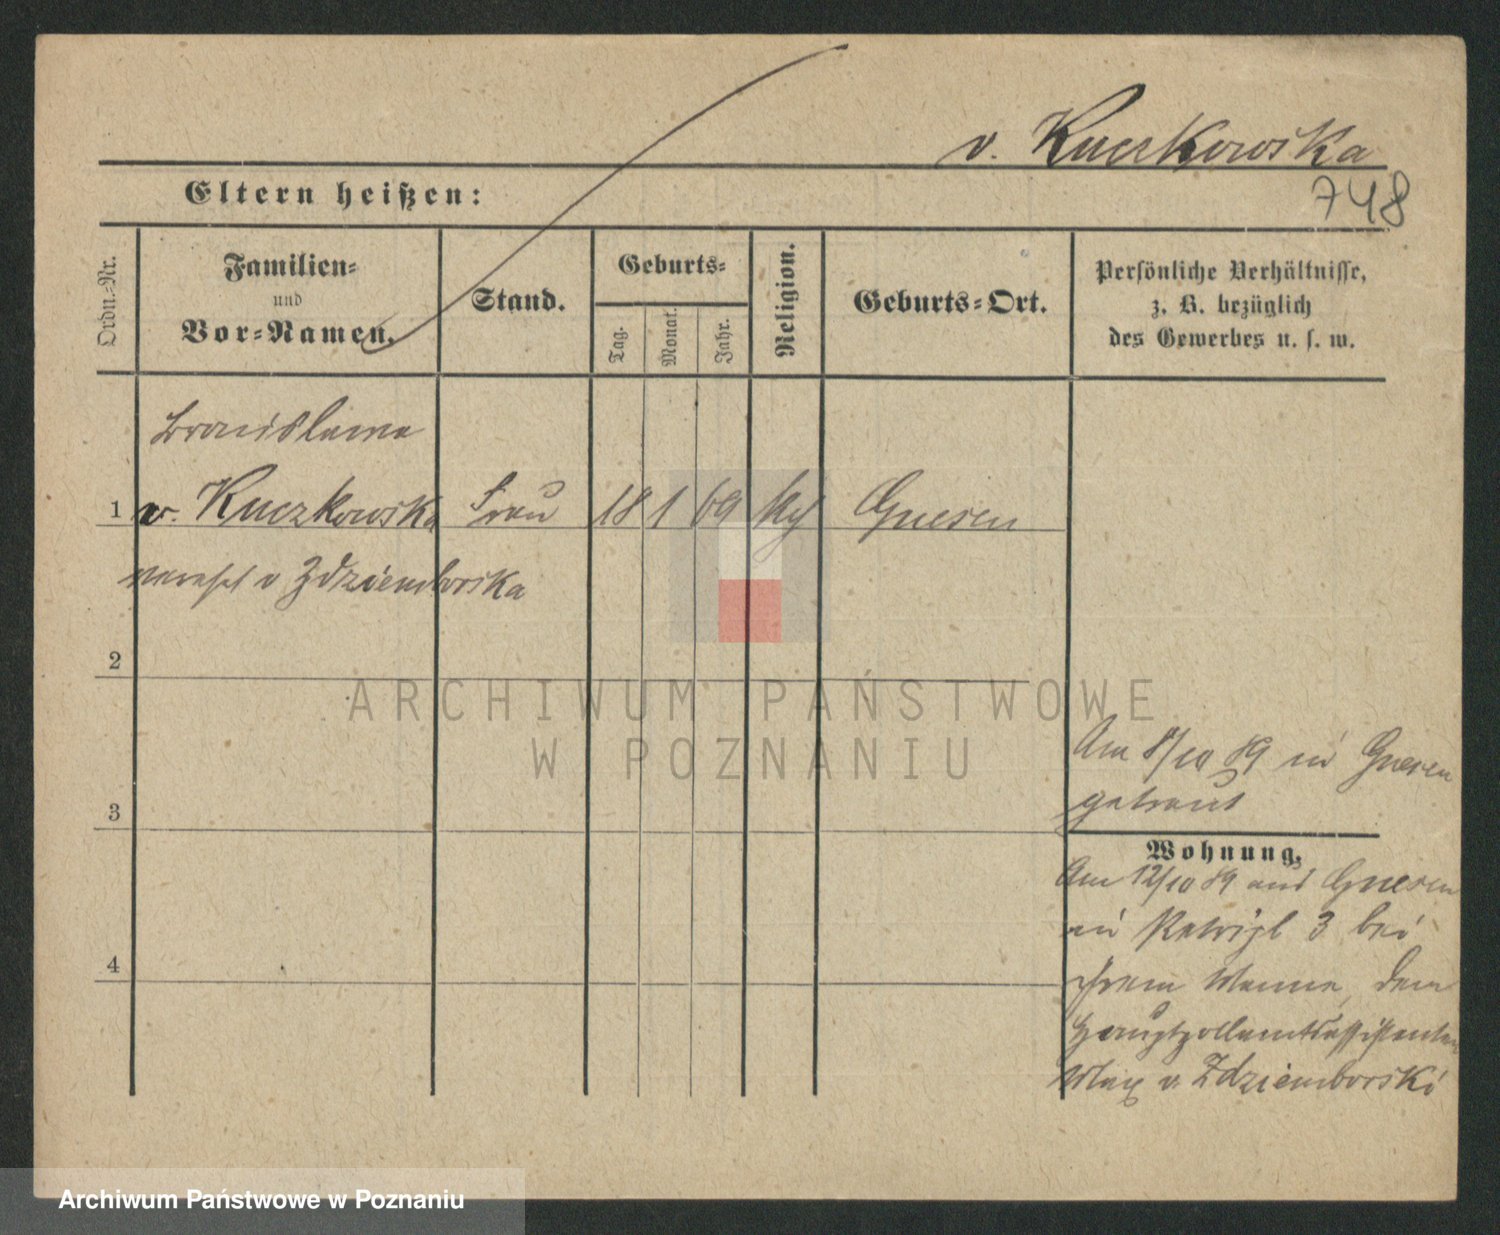 v. Kuczkowska
748
Eltern heißen:
Ordn.-Nr.
Familien-
und
Vor-Namen.
Stand.
Geburts-
Tag.
Monat.
Jahr.
Religion.
Geburts-Ort.
Persönliche Verhältnisse,
z. B. bezüglich
des Gewerbes u. s. w.
Bronislawa
1 v. Kuczkowska Frau 18 1 69 Gnesen
v Zdziemborska
2
ARCHIWUM PAŃSTWOWE
W POZNANIU
Am 8/10 89 in Gnesen
getraut
3
Wohnung.
Am 12/10 89 aus Gnesen
in 3 bei
ihrem Manne, dem
4
Hauptzollamtsassistenten
Max v. Zdziemborski
Archiwum Państwowe w Poznaniu